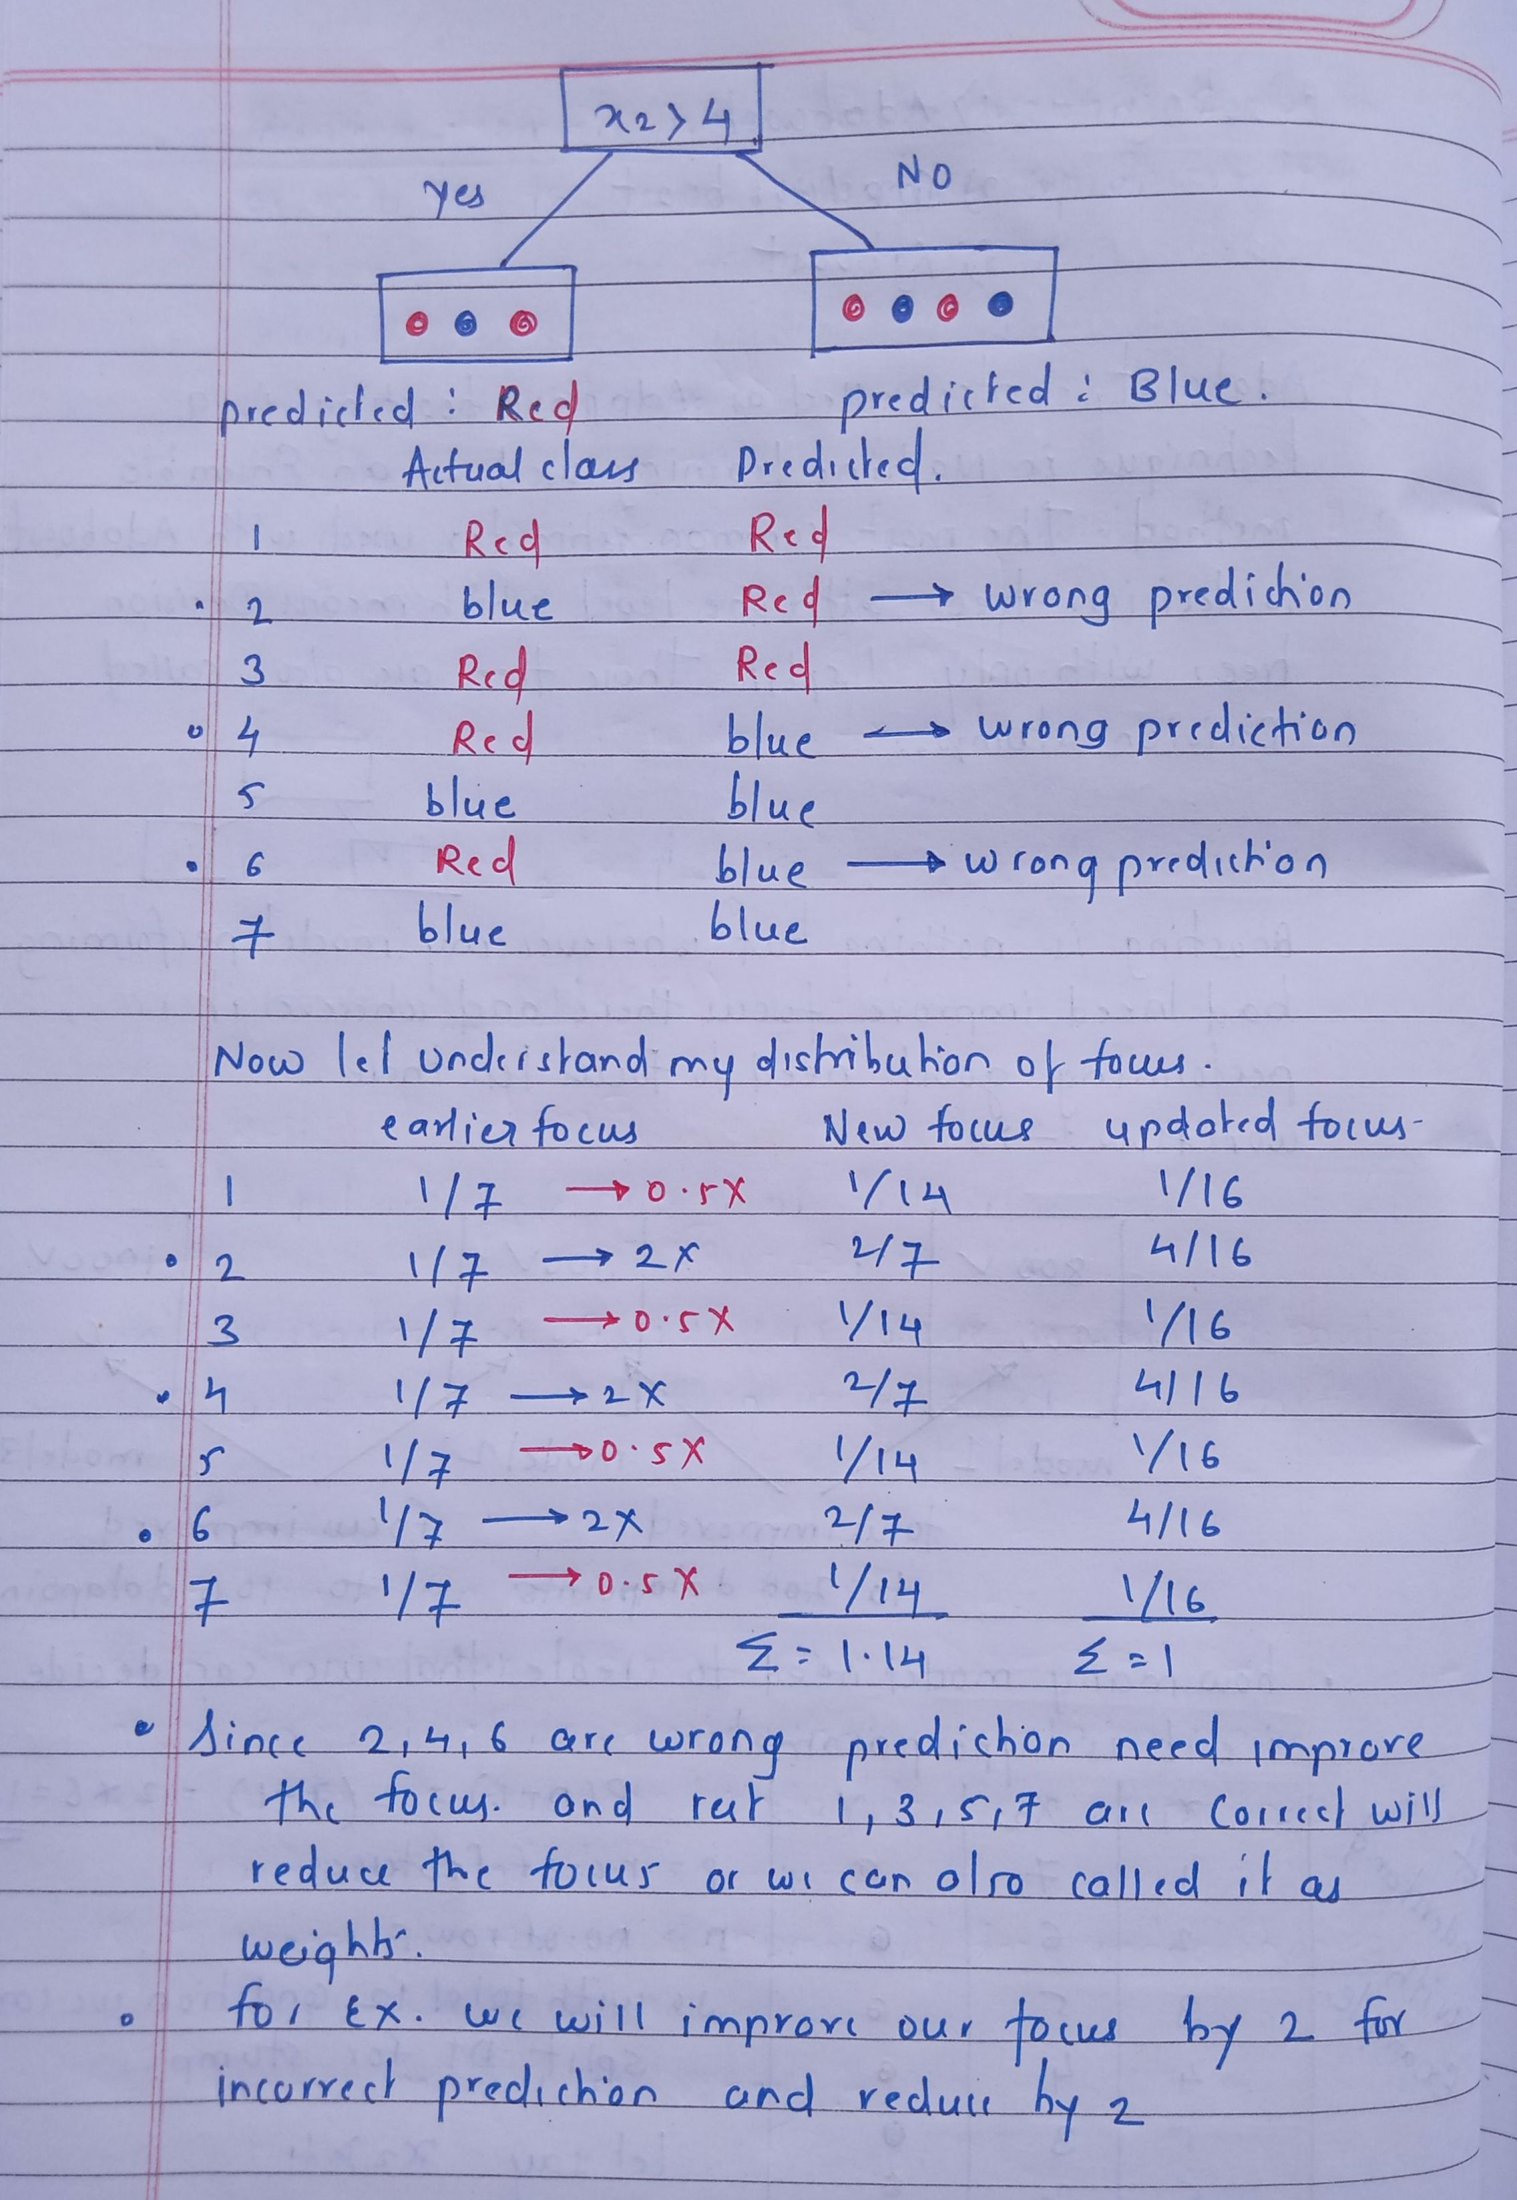 x2 > 4
Yes NO
predicted : Red predicted : Blue.
Actual class Predicted.
1 Red Red
2 blue Red → wrong prediction
3 Red Red
4 Red blue → wrong prediction
5 blue blue
6 Red blue → wrong prediction
7 blue blue
Now let understand my distribution of focus.
earlier focus New focus updated focus
1 1/7 → 0.5X 1/14 1/16
2 1/7 → 2X 2/7 4/16
3 1/7 → 0.5X 1/14 1/16
4 1/7 → 2X 2/7 4/16
5 1/7 → 0.5X 1/14 1/16
6 1/7 → 2X 2/7 4/16
7 1/7 → 0.5X 1/14 1/16
Σ = 1.14 Σ = 1
• Since 2, 4, 6 are wrong prediction need improve
the focus. and rest 1, 3, 5, 7 are correct will
reduce the focus or we can also called it as
weights.
• for Ex. we will improve our focus by 2 for
incorrect prediction and reduce by 2